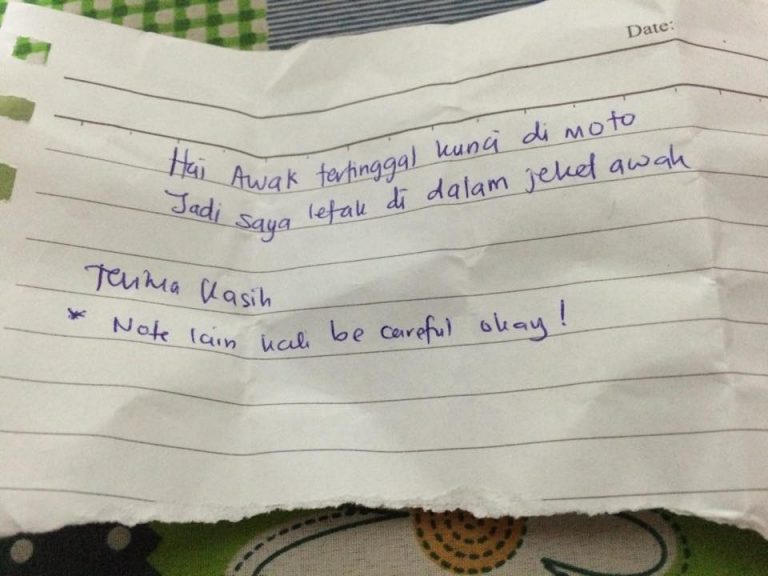 Date:
Hai Awak tertinggal kunci di moto
Jadi saya letak di dalam jeket awak
Terima Kasih
* Note lain kali be careful okay!